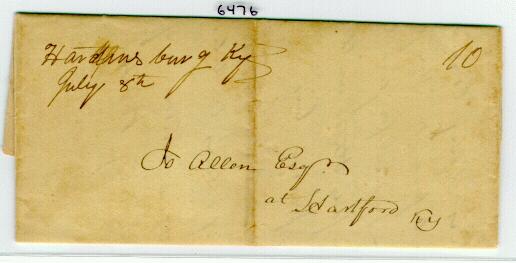 6476
Hardinsburg Ky
July 8th
10
Jo Allen Esqr
at Hartford Ky